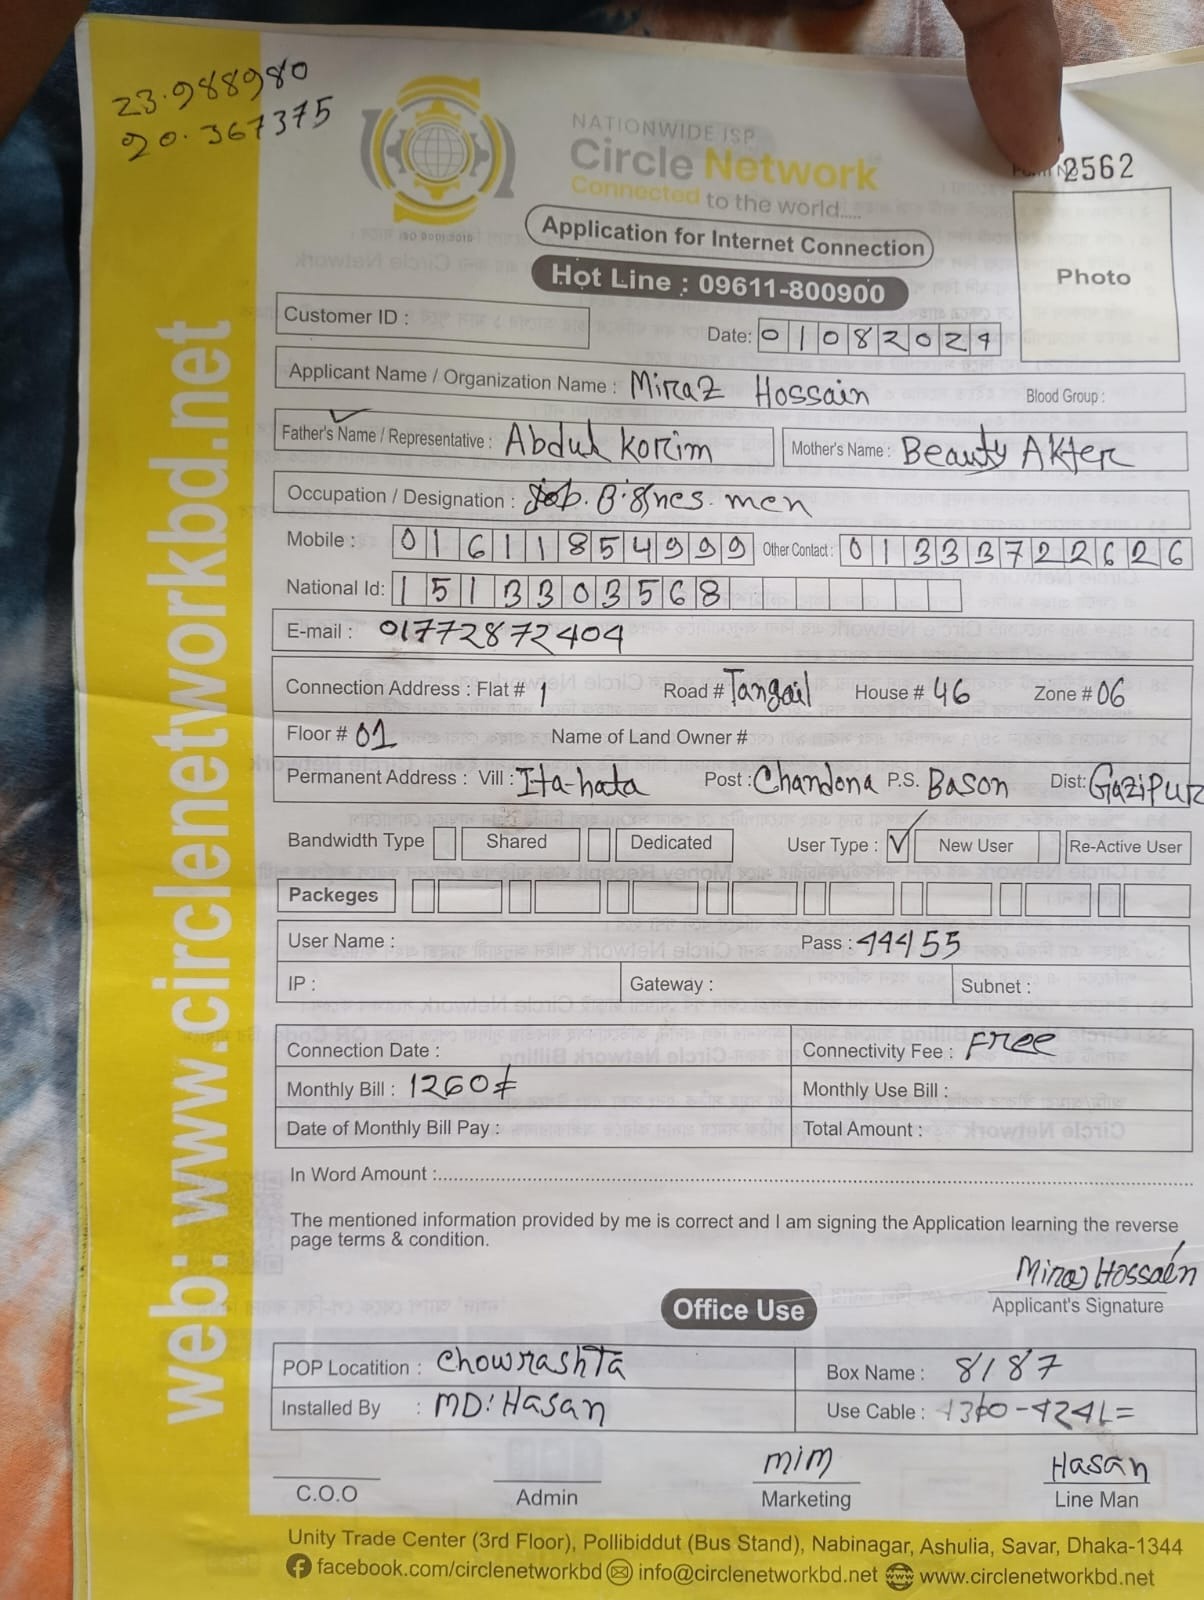 23.988980
90.367375
NATIONWIDE ISP
Circle Network
Connected to the world.....
ISO 9001:2015
Form No 2562
Application for Internet Connection
Hot Line : 09611-800900
Photo
Customer ID :
Date: 01082024
Applicant Name / Organization Name : Miraz Hossain Blood Group :
Father's Name / Representative : Abdul Korim Mother's Name : Beauty Akter
Occupation / Designation : men
Mobile : 01611854999 Other Contact : 01333722626
National Id: 1513303568
E-mail : 01772872404
Connection Address : Flat # 1 Road # Tangail House # 46 Zone # 06
Floor # 01 Name of Land Owner #
Permanent Address : Vill : Ita-hata Post : Chandona P.S. Bason Dist: Gazipur
Bandwidth Type Shared Dedicated User Type : ✓ New User Re-Active User
Packeges
User Name : Pass : 44455
IP : Gateway : Subnet :
Connection Date : Connectivity Fee : Free
Monthly Bill : 1260 Monthly Use Bill :
Date of Monthly Bill Pay : Total Amount :
In Word Amount :
The mentioned information provided by me is correct and I am signing the Application learning the reverse
page terms & condition.
Miraz Hossain
Applicant's Signature
Office Use
POP Locatition : Chowrashta Box Name : 8187
Installed By : MD: Hasan Use Cable :
mim Hasan
C.O.O Admin Marketing Line Man
Unity Trade Center (3rd Floor), Pollibiddut (Bus Stand), Nabinagar, Ashulia, Savar, Dhaka-1344
facebook.com/circlenetworkbd info@circlenetworkbd.net www.circlenetworkbd.net
web: www.circlenetworkbd.net